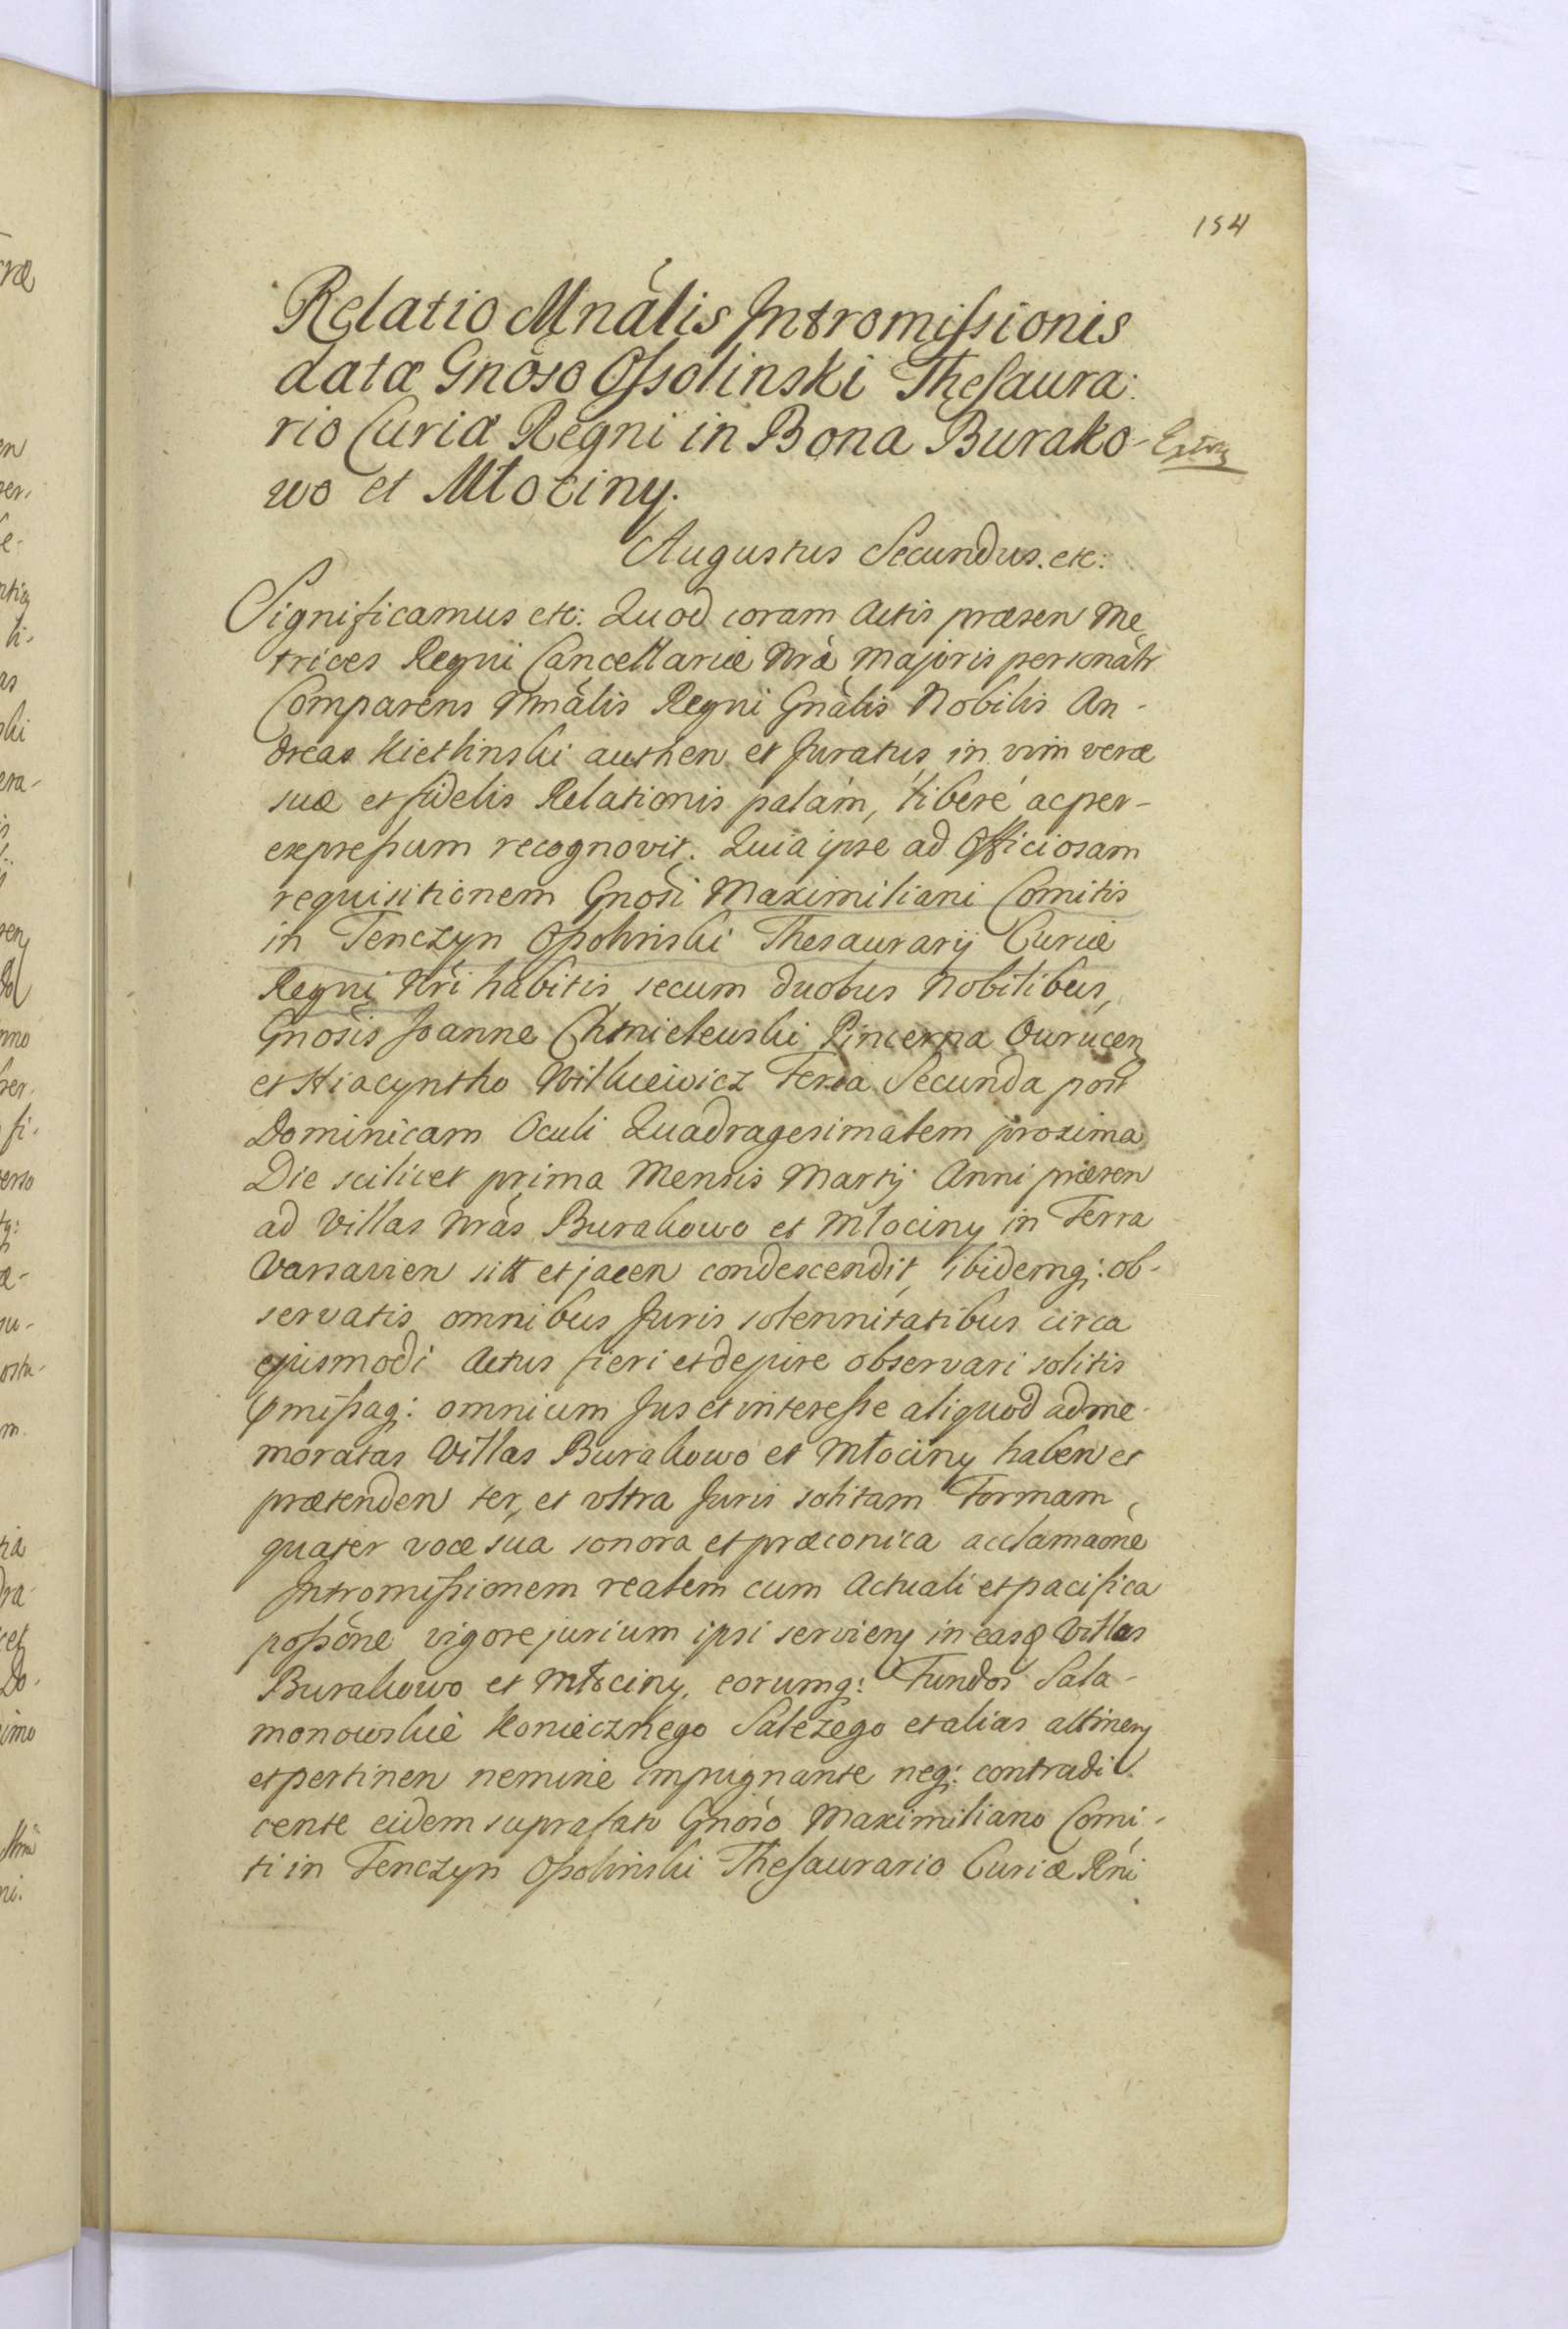 154
Relatio Mnâlis Intromissionis
datæ Gnôso Ossolinski Thesaura:
rio Curiæ Regni in Bona Burako-
wo et Młociny.
Augustus Secundus. etc:
Significamus etc: Quod coram Actis præsen Me
trices Regni Cancellariæ Nrâ Majoris personâlr
Comparens Mnâlis Regni Gnâlis Nobilis An-
dreas authen et Juratus, in vim veræ
suæ et fidelis Relationis palám, liberé ac per-
expressum recognovit. Quia ipse ad Officiosam
requisitionem Gnosi Maximiliani Comitis
in Tenczyn Ossolinski Thesaurarij Curiæ
Regni Nri habitis secum duobus Nobilibus,
Gnosis Joanne Chmielewski Pincerna Ovrucen
et Hiacyntho Witkiewicz Feria Secunda post
Dominicam Oculi Quadragesimalem proxima
Die scilicet prima Mensis Martij Anni præsen
ad Villas Nrâs Burakowo et Młociny in Terra
Varsavien sitt et jacen condescendit, ibidemq: ob-
servatis omnibus Juris solennitatibus circa
ejusmodi Actus fieri et de jure observari solitis
præmissaq: omnium Jus et interesse aliquod ad me-
moratas Villas Burakowo et Młociny haben et
prætenden ter, et ultra Juris solitam Formam
quater voce sua sonora et præconica acclamaône
Intromissionem realem cum Actuali et pacifica
possône vigore jurium ipsi servien in easq Villas
Burakowo et Młociny, eorumq: Fundos Sala-
monowskie Koniecznego Salezego et alias attinen
et pertinen nemine impugnante neq: contradi
cente eidem suprafato Gnoso Maximiliano Comi-
ti in Tenczyn Ossolinski Thesaurario Curiæ Rni